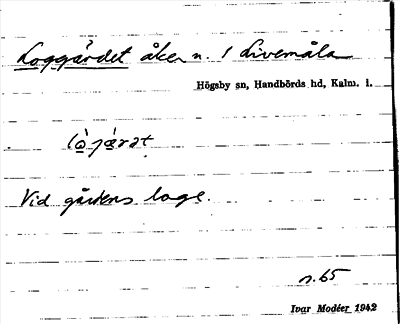 Loggärdet åker n. 1 Livemåla
Högsby sn, Handbörds hd, Kalm. l.
Vid gårdens loge.
n. 65
Ivar Modéer 1942